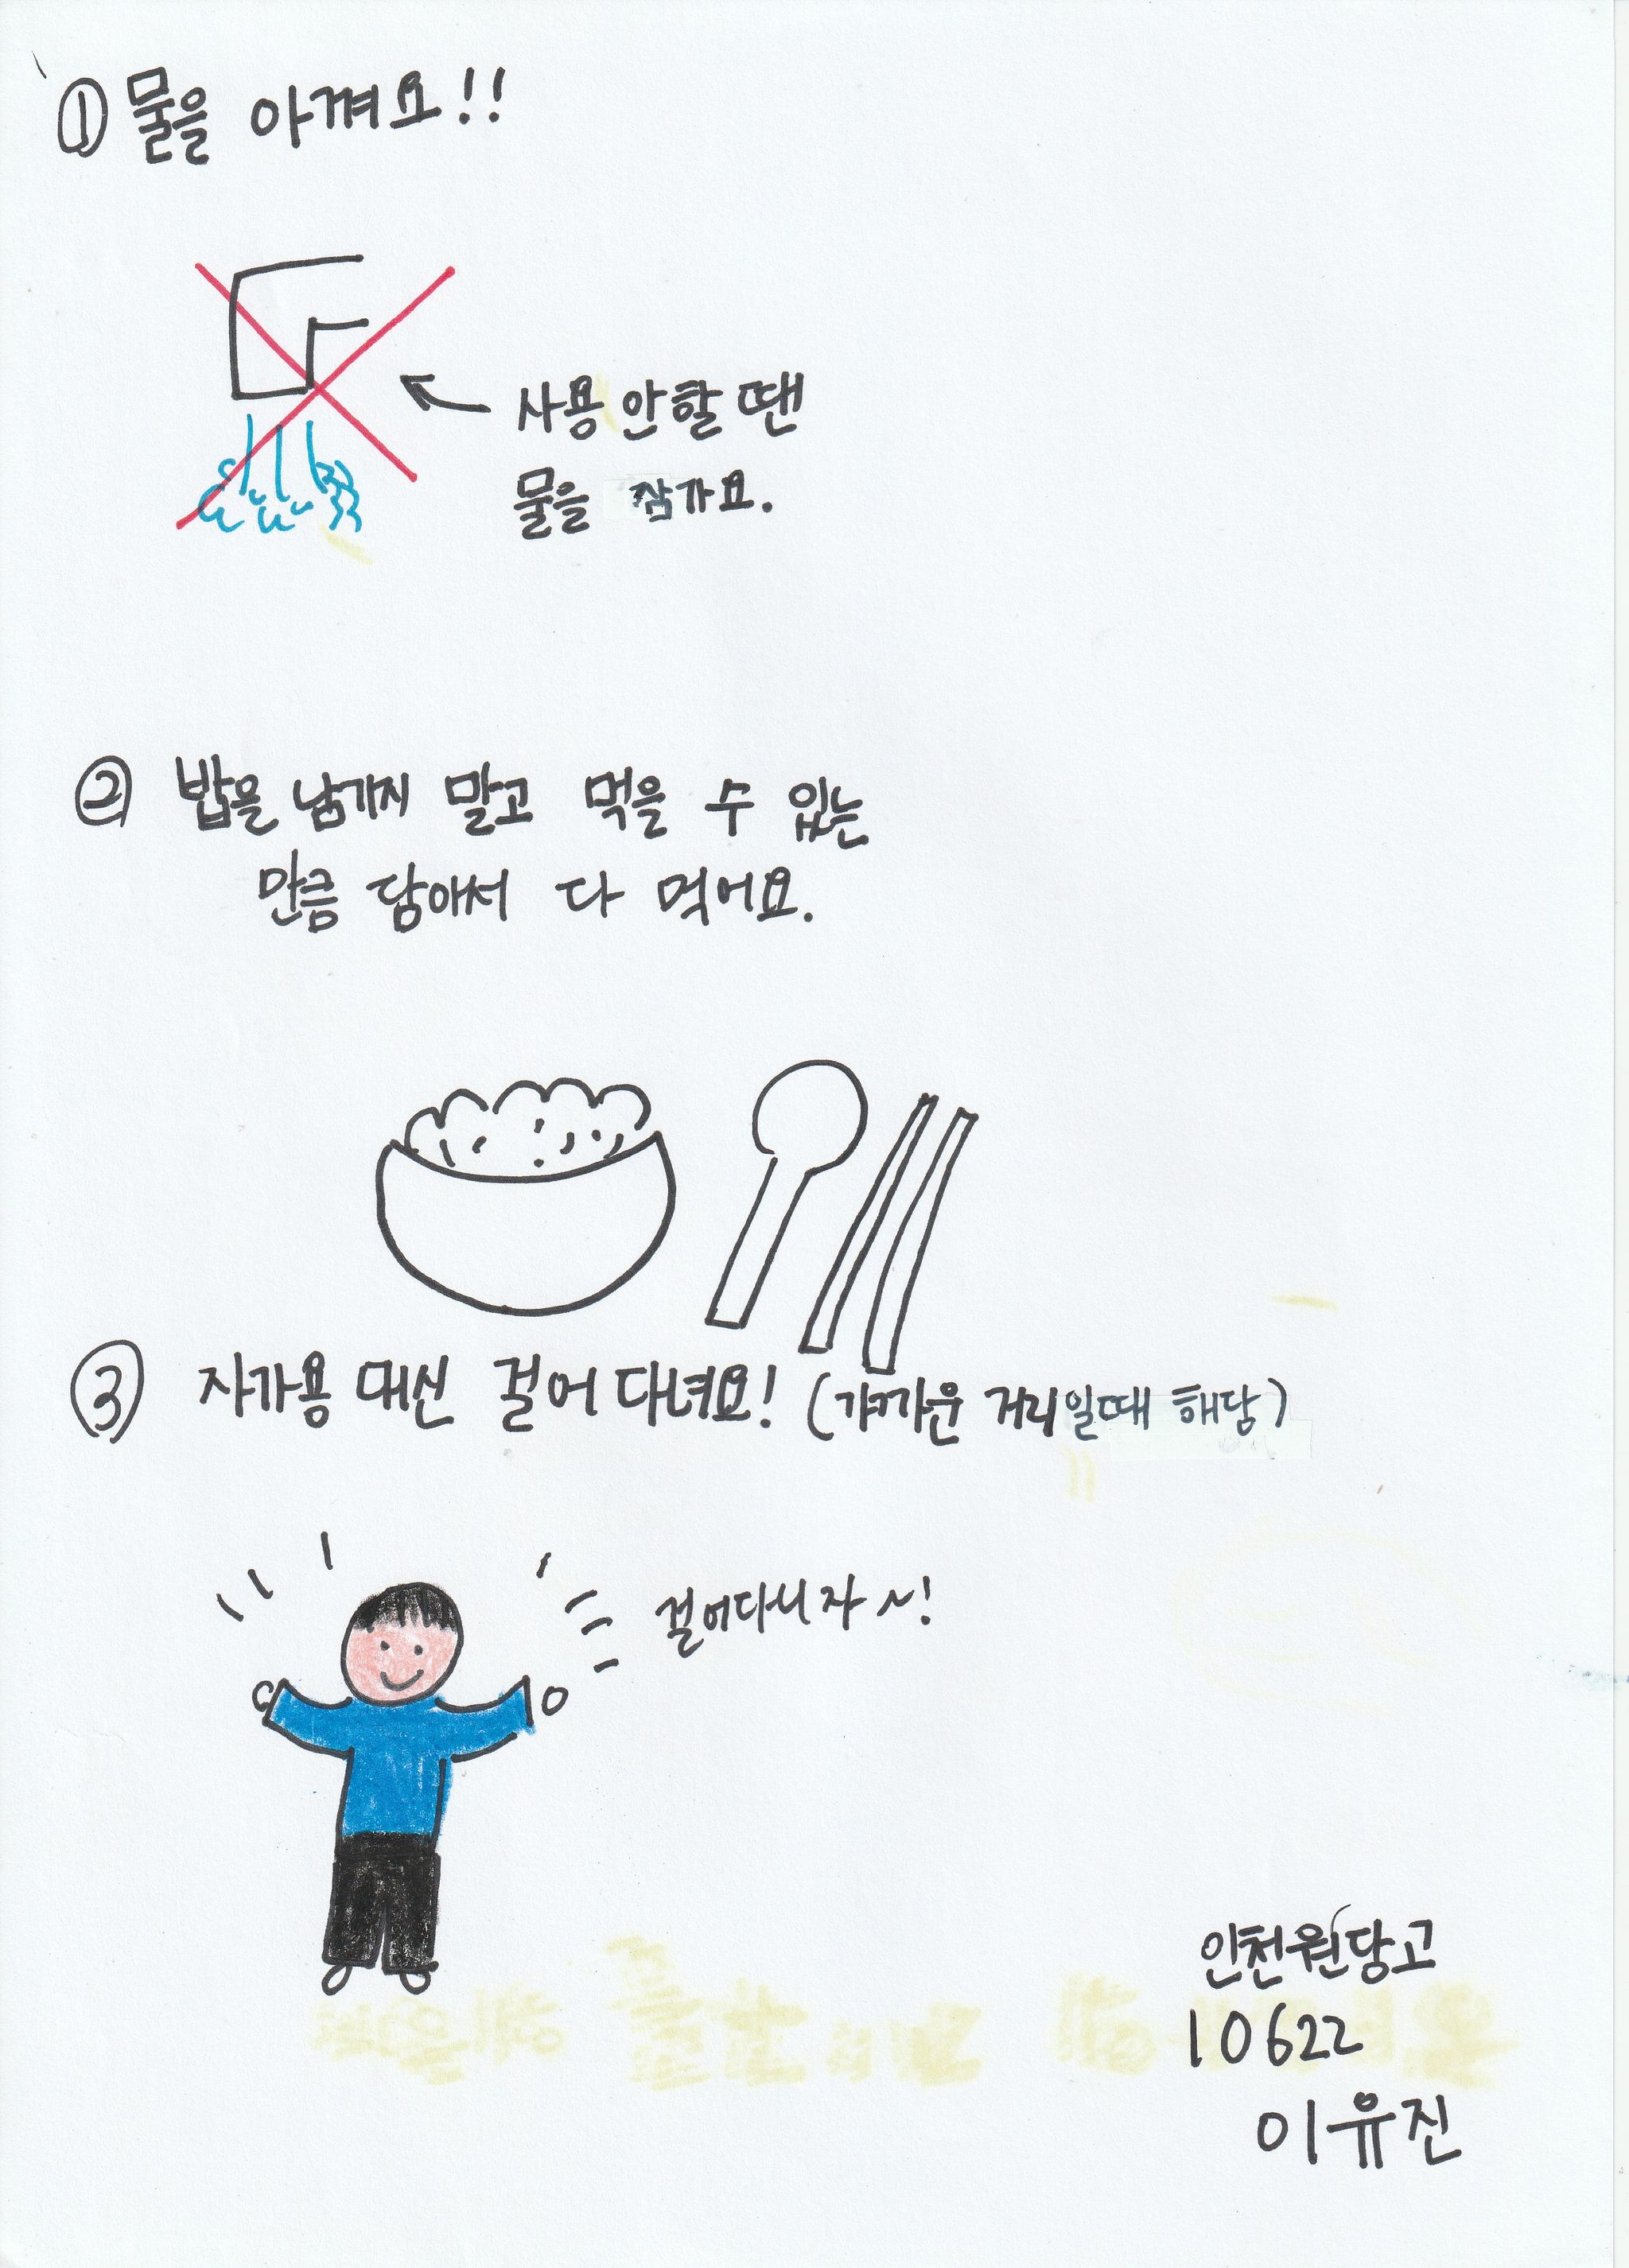 ① 물을 아껴요!!
사용 안할 땐
물을 잠가요.
② 밥을 남기지 말고 먹을 수 있는
만큼 담아서 다 먹어요.
③ 자가용 대신 걸어 다녀요! (가까운 거리일때 해당)
걸어다니자~!
인천원당고
10622
이유진